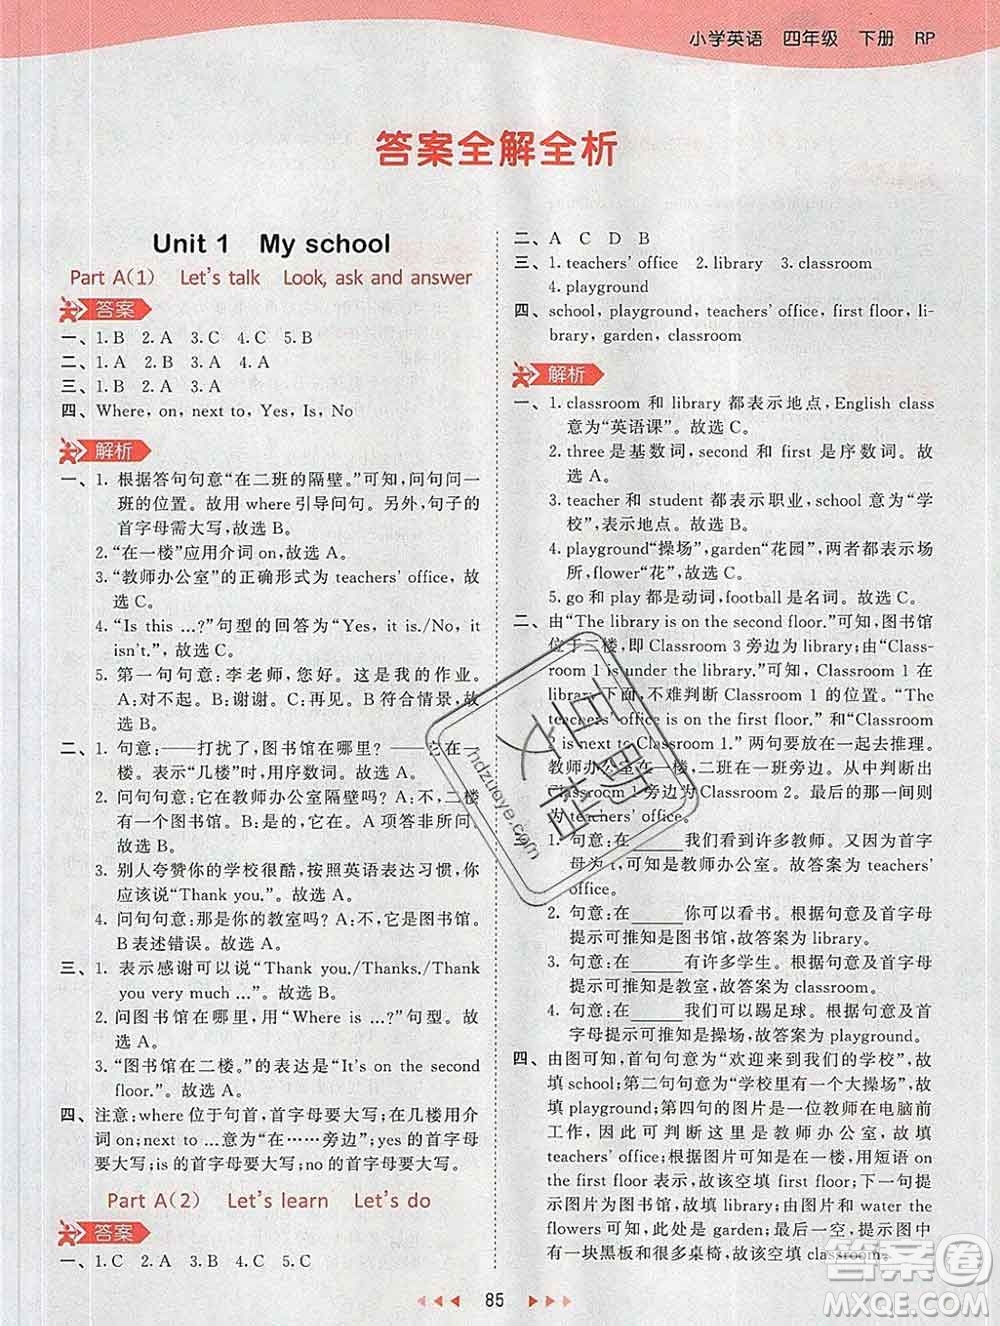 小学英语 四年级 下册 RP
答案全解全析
Unit 1 My school
Part A(1) Let's talk Look, ask and answer
答案
一、1. B 2. A 3. C 4. C 5. B
二、1. A 2. B 3. A 4. A
三、1. B 2. A 3. A
四、Where, on, next to, Yes, Is, No
解析
一、1. 根据答句句意“在二班的隔壁。”可知，问句问一
班的位置。故用 where 引导问句。另外，句子的
首字母需大写，故选 B。
2. “在一楼”应用介词 on，故选 A。
3. “教师办公室”的正确形式为 teachers' office，故
选 C。
4. “Is this …?”句型的回答为“Yes, it is./No, it
isn't.”，故选 C。
5. 第一句句意：李老师，您好。这是我的作业。
A：对不起。B：谢谢。C：再见。B 符合情景，故
选 B。
二、1. 句意：——打扰了，图书馆在哪里？——在二
楼。表示“几楼”时，用序数词。故选 A。
2. 问句句意：它在教师办公室隔壁吗？A：不，二楼
有一个图书馆。B：是的，它在。A 项答非所问。
故选 B。
3. 别人夸赞你的学校很酷，按照英语表达习惯，你
应该说“Thank you.”。故选 A。
4. 问句句意：那是你的教室吗？A：不，它是图书馆。
B 表述错误。故选 A。
三、1. 表示感谢可以说“Thank you./Thanks./Thank
you very much …”。故选 B。
2. 问图书馆在哪里，用“Where is …?”句型。故
选 A。
3. “图书馆在二楼。”的英语表达是“It's on the second
floor.”。故选 A。
四、注意：where 位于句首，首字母要大写；在几楼用介
词 on；next to …意为“在……旁边”；yes 的首字母
要大写；is 的首字母要大写；no 的首字母要大写。
Part A(2) Let's learn Let's do
答案
一、1. C 2. A 3. B 4. C 5. C
二、A C D B
三、1. teachers' office 2. library 3. classroom
4. playground
四、school, playground, teachers' office, first floor, li-
brary, garden, classroom
解析
一、1. classroom 和 library 都表示地点，English class
意为“英语课”。故选 C。
2. three 是基数词，second 和 first 是序数词。故
选 A。
3. teacher 和 student 都表示职业，school 意为“学
校”，表示地点。故选 B。
4. playground“操场”，garden“花园”，两者都表示场
所，flower“花”，故选 C。
5. go 和 play 都是动词，football 是名词。故选 C。
二、由“The library is on the second floor.”可知，图书馆
位于二楼，即 Classroom 3 旁边为图书馆；由“Class-
room 1 is under the library.”可知，Classroom 1 在
library 下面，不难判断 Classroom 1 的位置。“The
teachers' office is on the first floor.”和“Classroom
2 is next to Classroom 1.”两句要放在一起去推理。
教师办公室在一楼，二班在一班旁边。从中判断出
Classroom 1 旁边为 Classroom 2。最后的那一间则
为 teachers' office。
三、1. 句意：在____我们看到许多教师。又因为首字
母为 t，可知是教师办公室。故答案为 teachers'
office。
2. 句意：在____你可以看书。根据句意及首字母
提示可推知是图书馆，故答案为 library。
3. 句意：在____有许多学生。根据句意及首字母
提示可推知是教室，故答案为 classroom。
4. 句意：在____我们可以踢足球。根据句意及首
字母提示可推知是操场，故答案为 playground。
四、由图可知，首句句意为“欢迎来到我们的学校”，故
填 school；第二句句意为“学校里有一个大操场”，故
填 playground；第四句的图片是一位教师在电脑前
工作，因此可判断这里是教师办公室，故填
teachers' office；教师办公室在一楼，用短语 on the
first floor 表示，故该空填 first floor；根据下一句的
提示图片为图书馆，故填 library；根据 water the
flowers 可知，此处是 garden；最后一空，提示图片中
有一块黑板和很多桌椅，故该空填 classroom。
85
互动作业
hdzuoye.com
答案圈
MXQE.COM